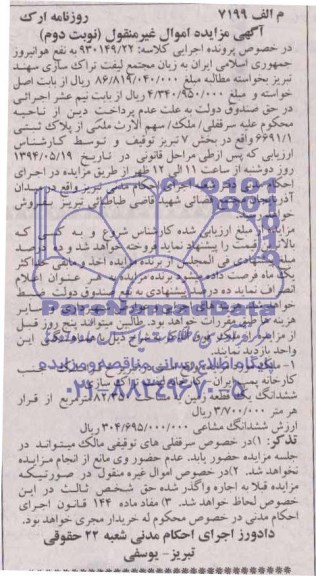 م الف ۷۱۹۹ روزنامه ارک
آگهی مزایده اموال غیرمنقول (نوبت دوم)
در خصوص پرونده اجرایی کلاسه: ۹۳۰۱۴۹/۲۲ به نفع هوانیروز
جمهوری اسلامی ایران به زیان مجتمع لیفت تراک سازی سهند
تبریز بخواسته مطالبه مبلغ ۸۶/۸۱۹/۰۴۰/۰۰۰ ریال از بابت اصل
خواسته و مبلغ ۴/۳۴۰/۹۵۰/۰۰۰ ریال از بابت نیم عشر اجرائی
در حق صندوق دولت به علت عدم پرداخت دین از ناحیه
محکوم علیه سرقفلی/ ملک/ سهم الارث ملکی از پلاک ثبتی
۶۶۹۱/۱ واقع در بخش ۷ تبریز توقیف و توسط کارشناس
ارزیابی که پس ازطی مراحل قانونی در تاریخ ۱۳۹۴/۰۵/۱۹
روز دوشنبه از ساعت ۱۱ الی ۱۲ ظهر از طریق مزایده در اجرای
احکام مدنی تبریز واقع در میدان
آذربایجان مجتمع قضائی شهید قاضی طباطبائی تبریز بفروش
خواهد
مزایده از مبلغ ارزیابی شده کارشناس شروع و به کسی که
بالاترین قیمت را پیشنهاد نماید فروخته خواهد شد و ده درصد
فی المجلس از برنده مزایده اخذ و مابقی حداکثر
یک ماه فرصت داده میشود برنده مزایده به هر عنوان اعلام
انصراف نماید ده درصد پیشنهادی به نفع صندوق دولت ضبط
خواهد و سایر
هزینه ها طبق مقررات خواهد بود. طالبین میتوانند پنج روز قبل
از مزایده از ملک با هماهنگی این
واحد بازدید نمایند.
۱-
کارخانه پمپ ایران
ششدانگ یک قطعه زمین مترمربع از قرار
هر متر ۳/۷۰۰/۰۰۰ ریال
ارزش ششدانگ مشاعی ۳۰۴/۶۹۵/۰۰۰/۰۰۰ ریال
تذکر: ۱)در خصوص سرقفلی های توقیفی مالک میتواند در
جلسه مزایده حضور یابد. عدم حضور وی مانع از انجام مزایده
نخواهد شد. ۲)درخصوص اموال غیره منقول در صورتیکه
مزایده قبلا به اجاره واگذر شده حق شخص ثالث در این
خصوص لحاظ خواهد شد. ۳) مفاد ماده ۱۴۴ قانون اجرای
احکام مدنی در خصوص محکوم له خریدار مجری خواهد بود.
دادورز اجرای احکام مدنی شعبه ۲۲ حقوقی
تبریز- یوسفی
ParsNamadData
پایگاه اطلاع رسانی مناقصه و مزایده
۰۲۱-۸۸۳۴۹۶۷۰-۵